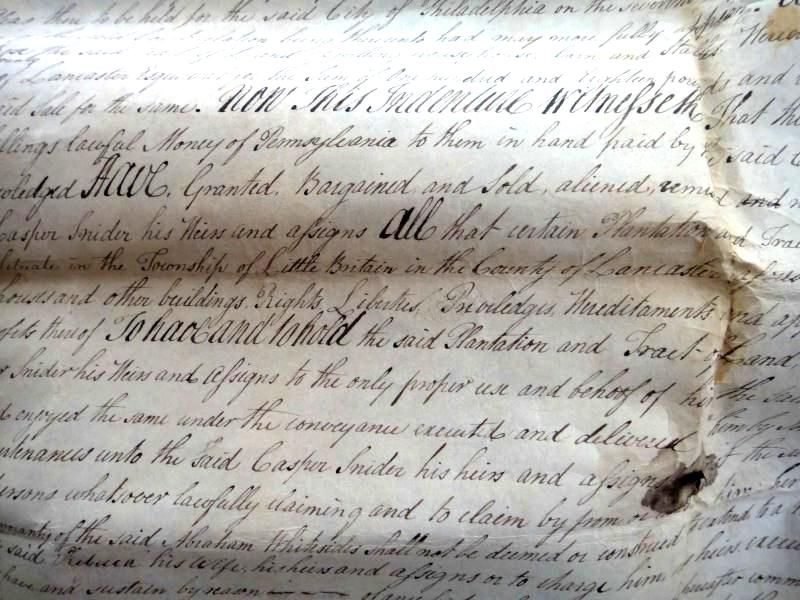 then to be held for the said City of Philadelphia on the
had may more fully appear
of Lancaster Esquire the Sum of One hundred and Eighteen pounds and
said Sale for the same. Now this Indenture Witnesseth That the
llings lawful Money of Pennsylvania to them in hand paid by the said
owledged Have, Granted, Bargained and Sold, aliened, and
Casper Snider his Heirs and assigns All that certain Plantation and Trac
situate in the Township of Little Britain in the County of Lancaster
houses and other buildings. Rights, Liberties, Priviledges, Hereditaments and app
ofits thereof To have and to hold the said Plantation and Tract of Land,
r Snider his Heirs and Assigns to the only proper use and behoof of him the sai
d enjoyed the same under the conveyance executed and delivered
urtenances unto the said Casper Snider his heirs and assigns of the
ersons whatsover lawfully claiming and to claim by from or him
warranty of the said Abraham Whitesides shall not be deemed or construed to extend to a
said his wife, his heirs and assigns or to charge him heirs, execu
have and sustain by reason hereafter comm